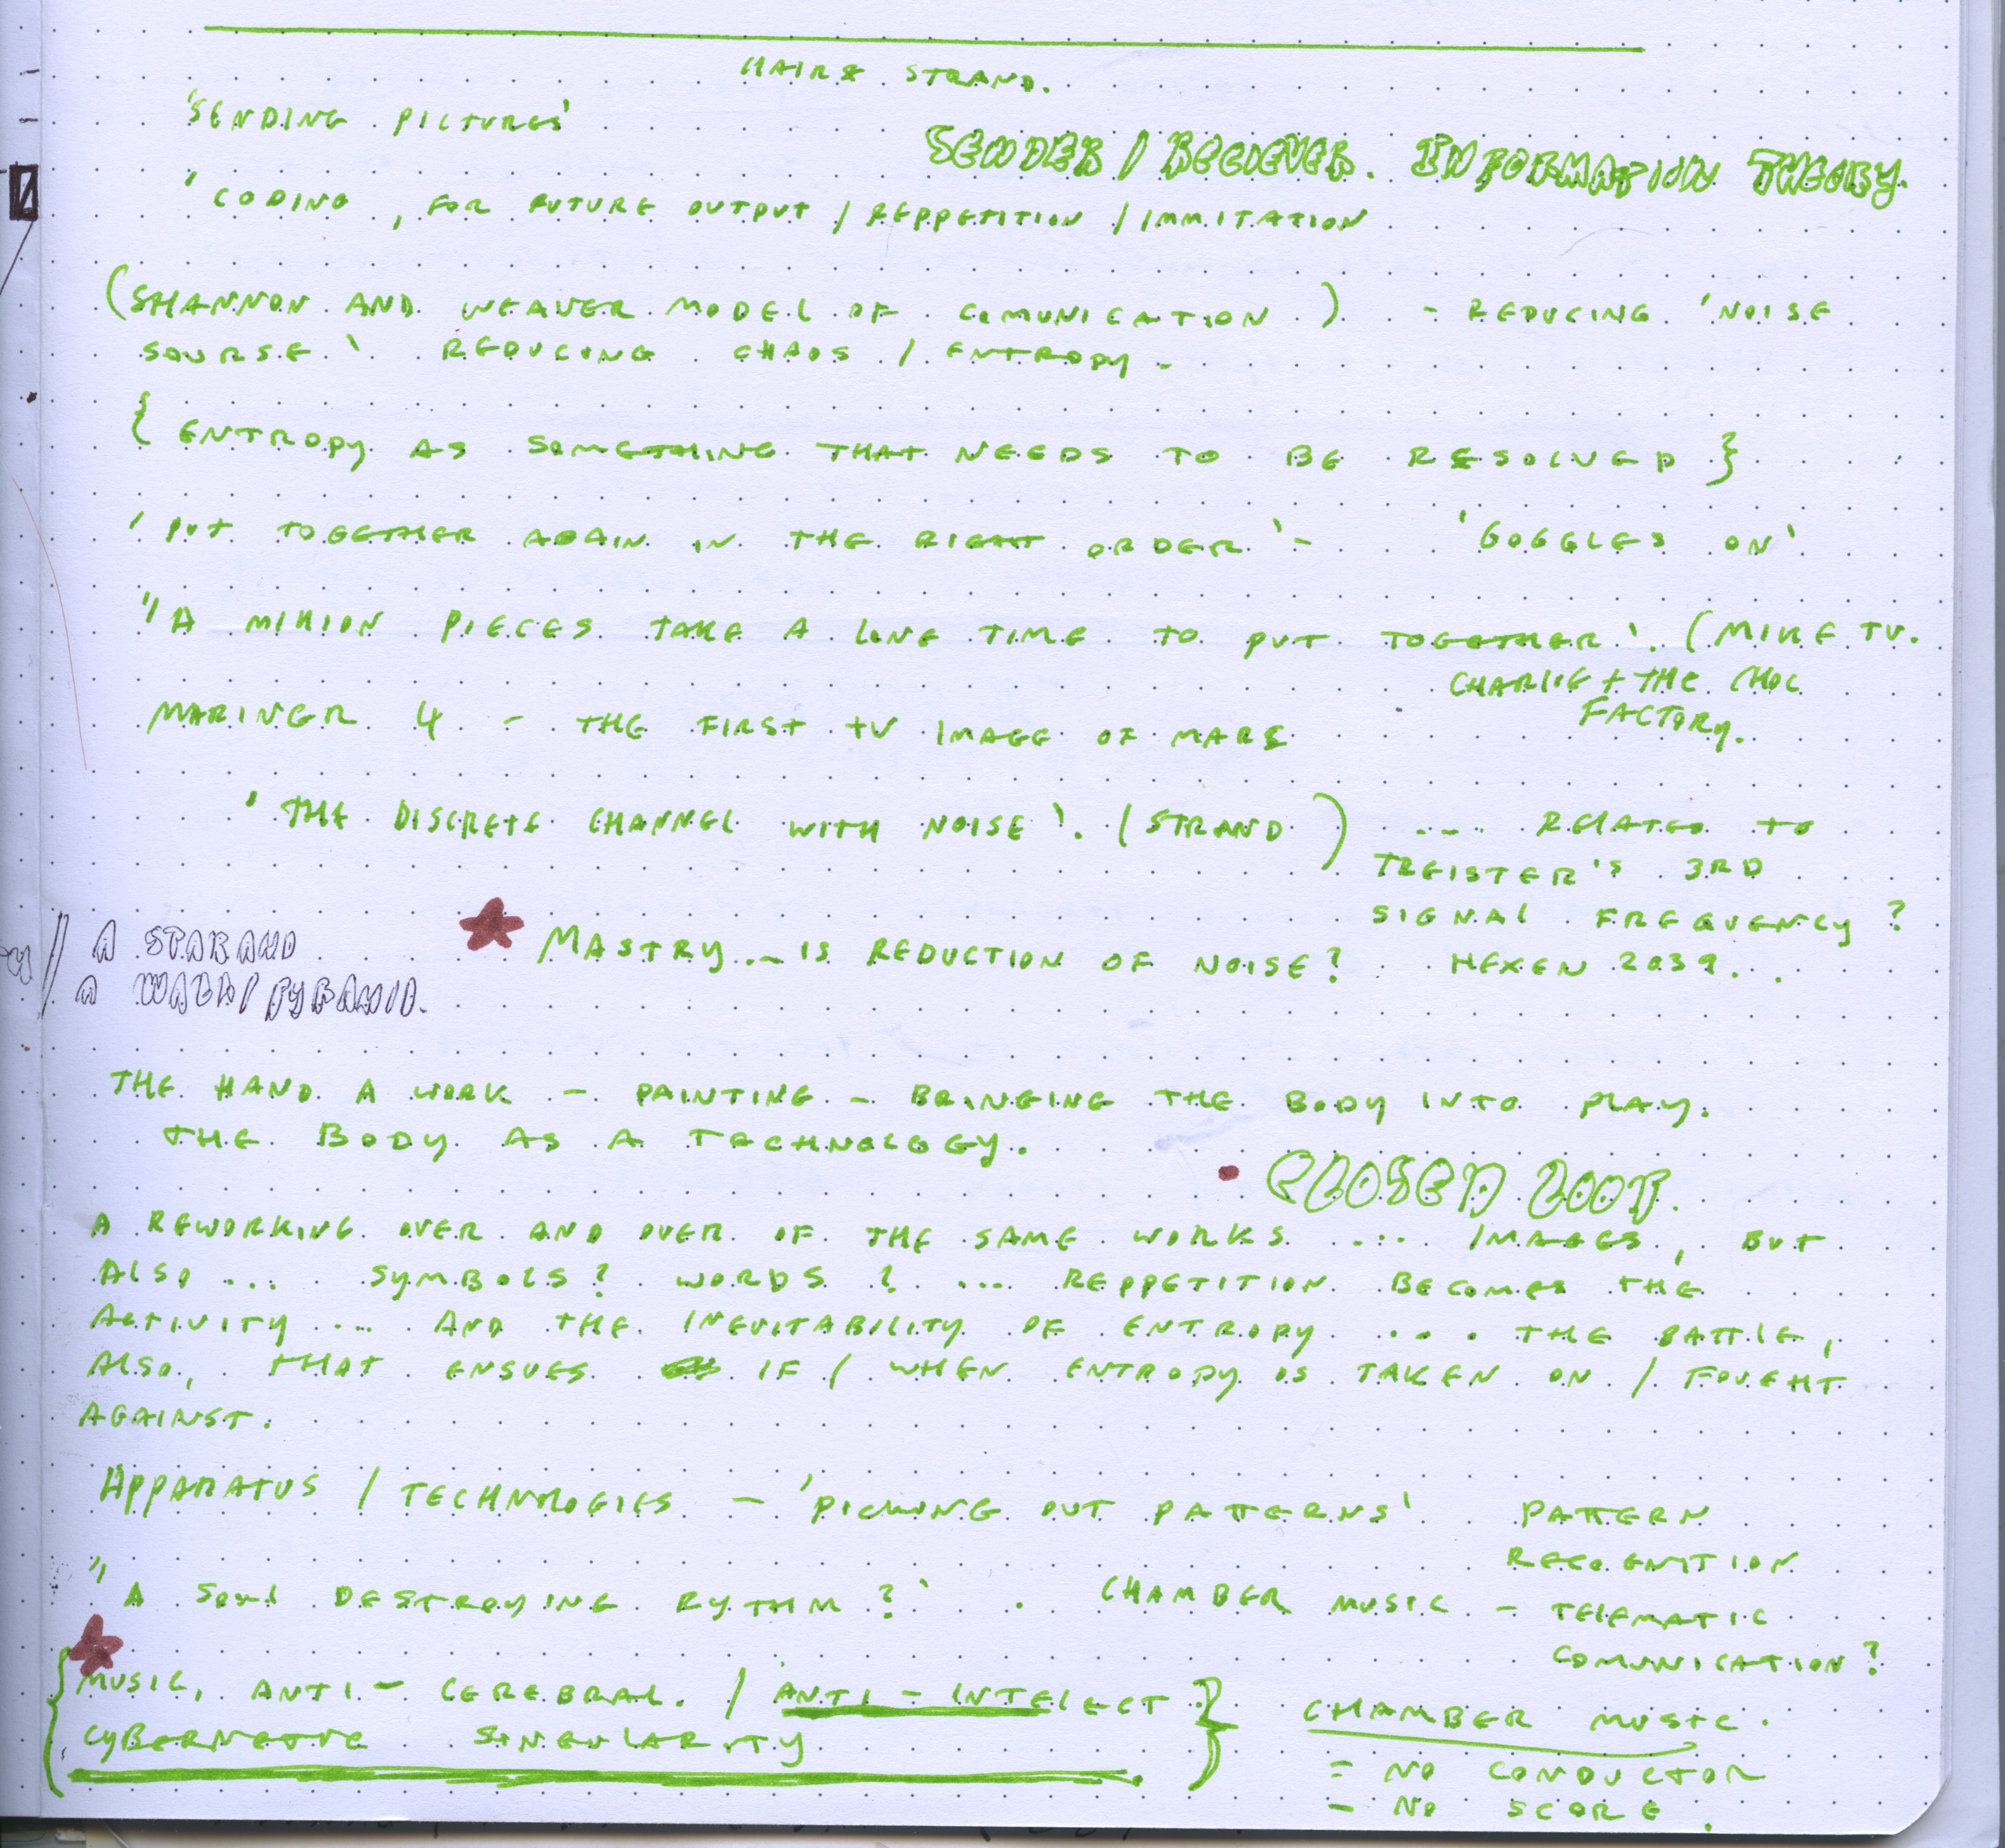 HAIR & STRAND.
'SENDING PICTURES'
SENDER / RECIEVER. INFORMATION THEORY.
'CODING, FOR FUTURE OUTPUT / REPPETITION / IMMITATION
(SHANNON AND WEAVER MODEL OF COMUNICATION) - REDUCING 'NOISE
SOURSE' REDUCING CHAOS / ENTROPY -
{ ENTROPY AS SOMETHING THAT NEEDS TO BE RESOLVED }
'PUT TOGETHER AGAIN IN THE RIGHT ORDER' - 'GOGGLES ON'
"A MILLION PIECES TAKE A LONG TIME TO PUT TOGETHER'. (MIKE TV.
CHARLIE + THE CHOC
FACTORY.
MARINER 4 - THE FIRST TV IMAGE OF MARS
'THE DISCRETE CHANNEL WITH NOISE'. (STRAND) ... RELATED TO
TREISTER'S 3RD
SIGNAL FREQUENCY?
HEXEN 2039...
A STRAND
A WALK / PYRAMID.
MASTRY... IS REDUCTION OF NOISE?
THE HAND A WORK - PAINTING - BRINGING THE BODY INTO PLAY.
THE BODY AS A TECHNOLOGY.
CLOSED LOOP.
A REWORKING OVER AND OVER OF THE SAME WORKS .... IMAGES, BUT
ALSO ... SYMBOLS? WORDS? .... REPPETITION BECOMES THE
ACTIVITY ... AND THE INEVITABILITY OF ENTROPY .... THE BATTLE,
ALSO, THAT ENSUES IF / WHEN ENTROPY IS TAKEN ON / FOUGHT
AGAINST.
APPARATUS / TECHNOLOGIES - 'PICKING OUT PATTERNS' PATTERN
RECOGNITION
"A SOUL DESTROYING RYTHM?' . CHAMBER MUSIC - TELEMATIC
COMUNICATION?
{ MUSIC, ANTI-CEREBRAL. / ANTI-INTELECT }
CYBERNETIC SINGULARITY
CHAMBER MUSIC.
= NO CONDUCTOR
- NO SCORE.